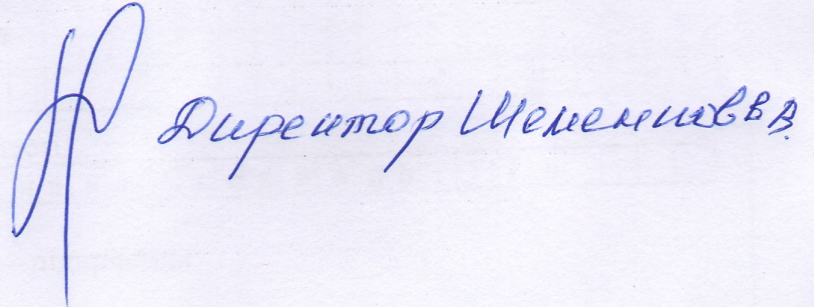 Директор Шеменков В В.